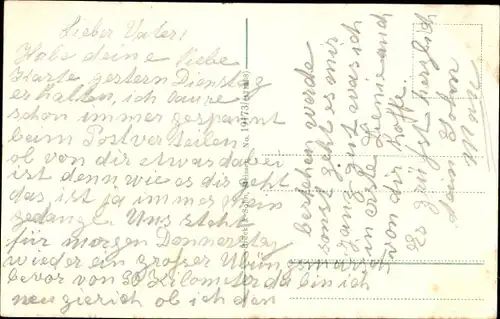 Lieber Vater!
Habe deine liebe
Karte gestern Dienstag
erhalten, ich laure
schon immer gespannt
beim Postverteilen
ob von dir etwas dabei
ist denn wie es dir geht
das ist ja immer mein
gedanke. Uns steht
für morgen Donnerstag
wieder ein großer Übungsmarsch
bevor von 30 Kilometer da bin ich
neugierich ob ich den
bestehen werde
sonst geht es mir
ganz gut was ich
in erster Lienie auch
von dir hoffe.
Es grüßt herzlich
dein Sohn
No. 19173